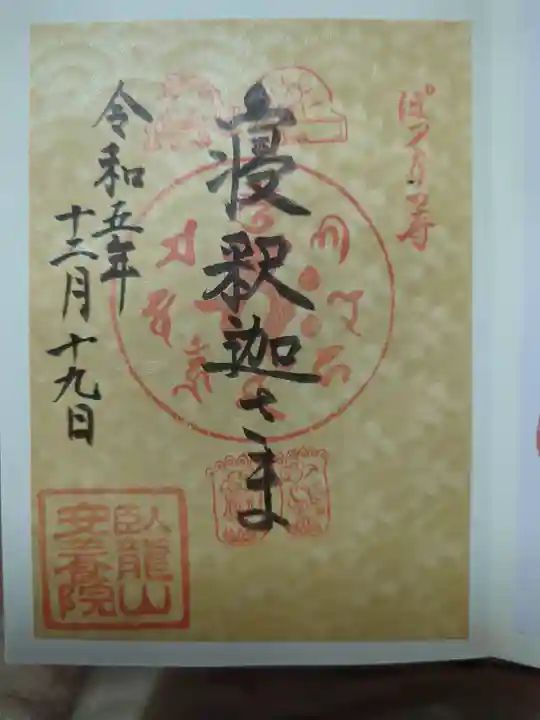 ぽっくり寺
寝釈迦さま
令和五年
十二月十九日
臥龍山
安養院